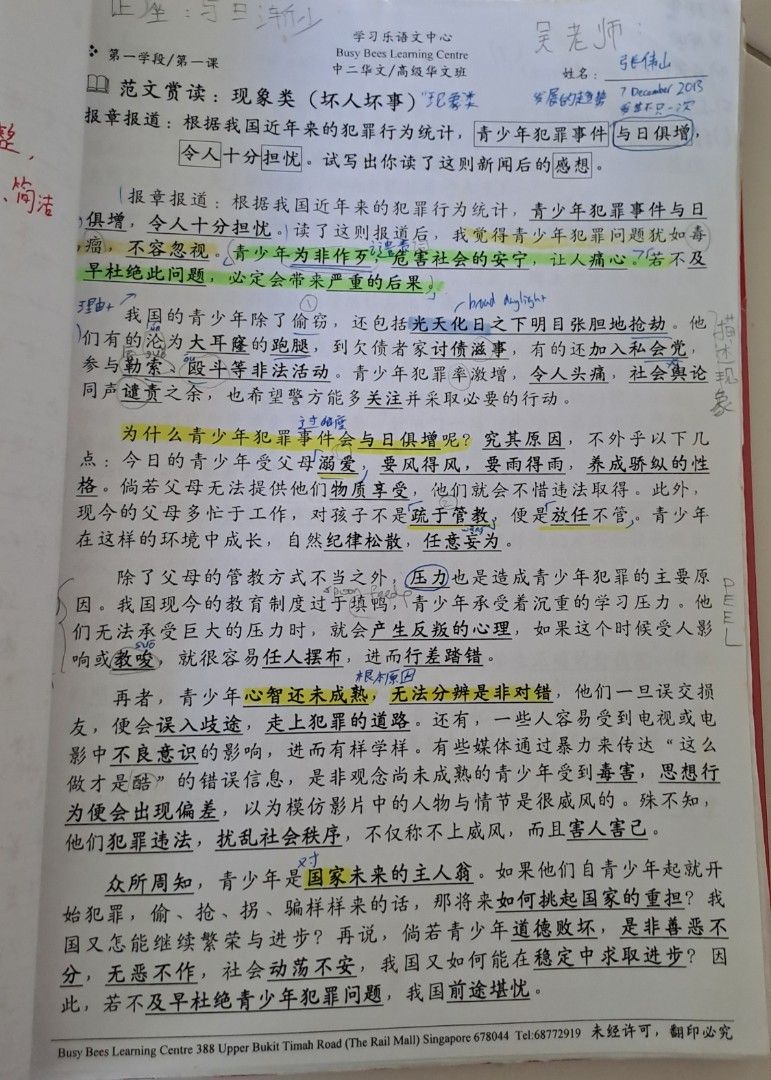 正座:与旦渐少
学习乐语文中心
Busy Bees Learning Centre
中二华文/高级华文班
吴老师:
第一学段/第一课
姓名: 张伟山
范文赏读:现象类(坏人坏事)
"现象类
发展的趋势
7 December 2013
报章报道:根据我国近年来的犯罪行为统计,青少年犯罪事件与日俱增,
令人十分担忧。试写出你读了这则新闻后的感想。
整,
简洁
报章报道:根据我国近年来的犯罪行为统计,青少年犯罪事件与日
俱增,令人十分担忧。读了这则报道后,我觉得青少年犯罪问题犹如毒
瘤,不容忽视。青少年为非作歹,危害社会的安宁,让人痛心。若不及
早杜绝此问题,必定会带来严重的后果。
理由+
①
broad daylight
我国的青少年除了偷窃,还包括光天化日之下明目张胆地抢劫。他
们有的沦为大耳窿的跑腿,到欠债者家讨债滋事,有的还加入私会党,
参与勒索、殴斗等非法活动。青少年犯罪率激增,令人头痛,社会舆论
同声谴责之余,也希望警方能多关注并采取必要的行动。
描述现象
为什么青少年犯罪事件会与日俱增呢?究其原因,不外乎以下几
点:今日的青少年受父母溺爱,要风得风,要雨得雨,养成骄纵的性
格。倘若父母无法提供他们物质享受,他们就会不惜违法取得。此外,
现今的父母多忙于工作,对孩子不是疏于管教,便是放任不管。青少年
在这样的环境中成长,自然纪律松散,任意妄为。
除了父母的管教方式不当之外,压力也是造成青少年犯罪的主要原
spoon feed
因。我国现今的教育制度过于填鸭,青少年承受着沉重的学习压力。他
们无法承受巨大的压力时,就会产生反叛的心理,如果这个时候受人影
suō
响或教唆,就很容易任人摆布,进而行差踏错。
PEEL
根本原因
再者,青少年心智还未成熟,无法分辨是非对错,他们一旦误交损
友,便会误入歧途,走上犯罪的道路。还有,一些人容易受到电视或电
影中不良意识的影响,进而有样学样。有些媒体通过暴力来传达“这么
做才是酷”的错误信息,是非观念尚未成熟的青少年受到毒害,思想行
为便会出现偏差,以为模仿影片中的人物与情节是很威风的。殊不知,
他们犯罪违法,扰乱社会秩序,不仅称不上威风,而且害人害己。
对
众所周知,青少年是国家未来的主人翁。如果他们自青少年起就开
始犯罪,偷、抢、拐、骗样样来的话,那将来如何挑起国家的重担?我
国又怎能继续繁荣与进步?再说,倘若青少年道德败坏,是非善恶不
分,无恶不作,社会动荡不安,我国又如何能在稳定中求取进步?因
此,若不及早杜绝青少年犯罪问题,我国前途堪忧。
Busy Bees Learning Centre 388 Upper Bukit Timah Road (The Rail Mall) Singapore 678044 Tel:68772919 未经许可,翻印必究